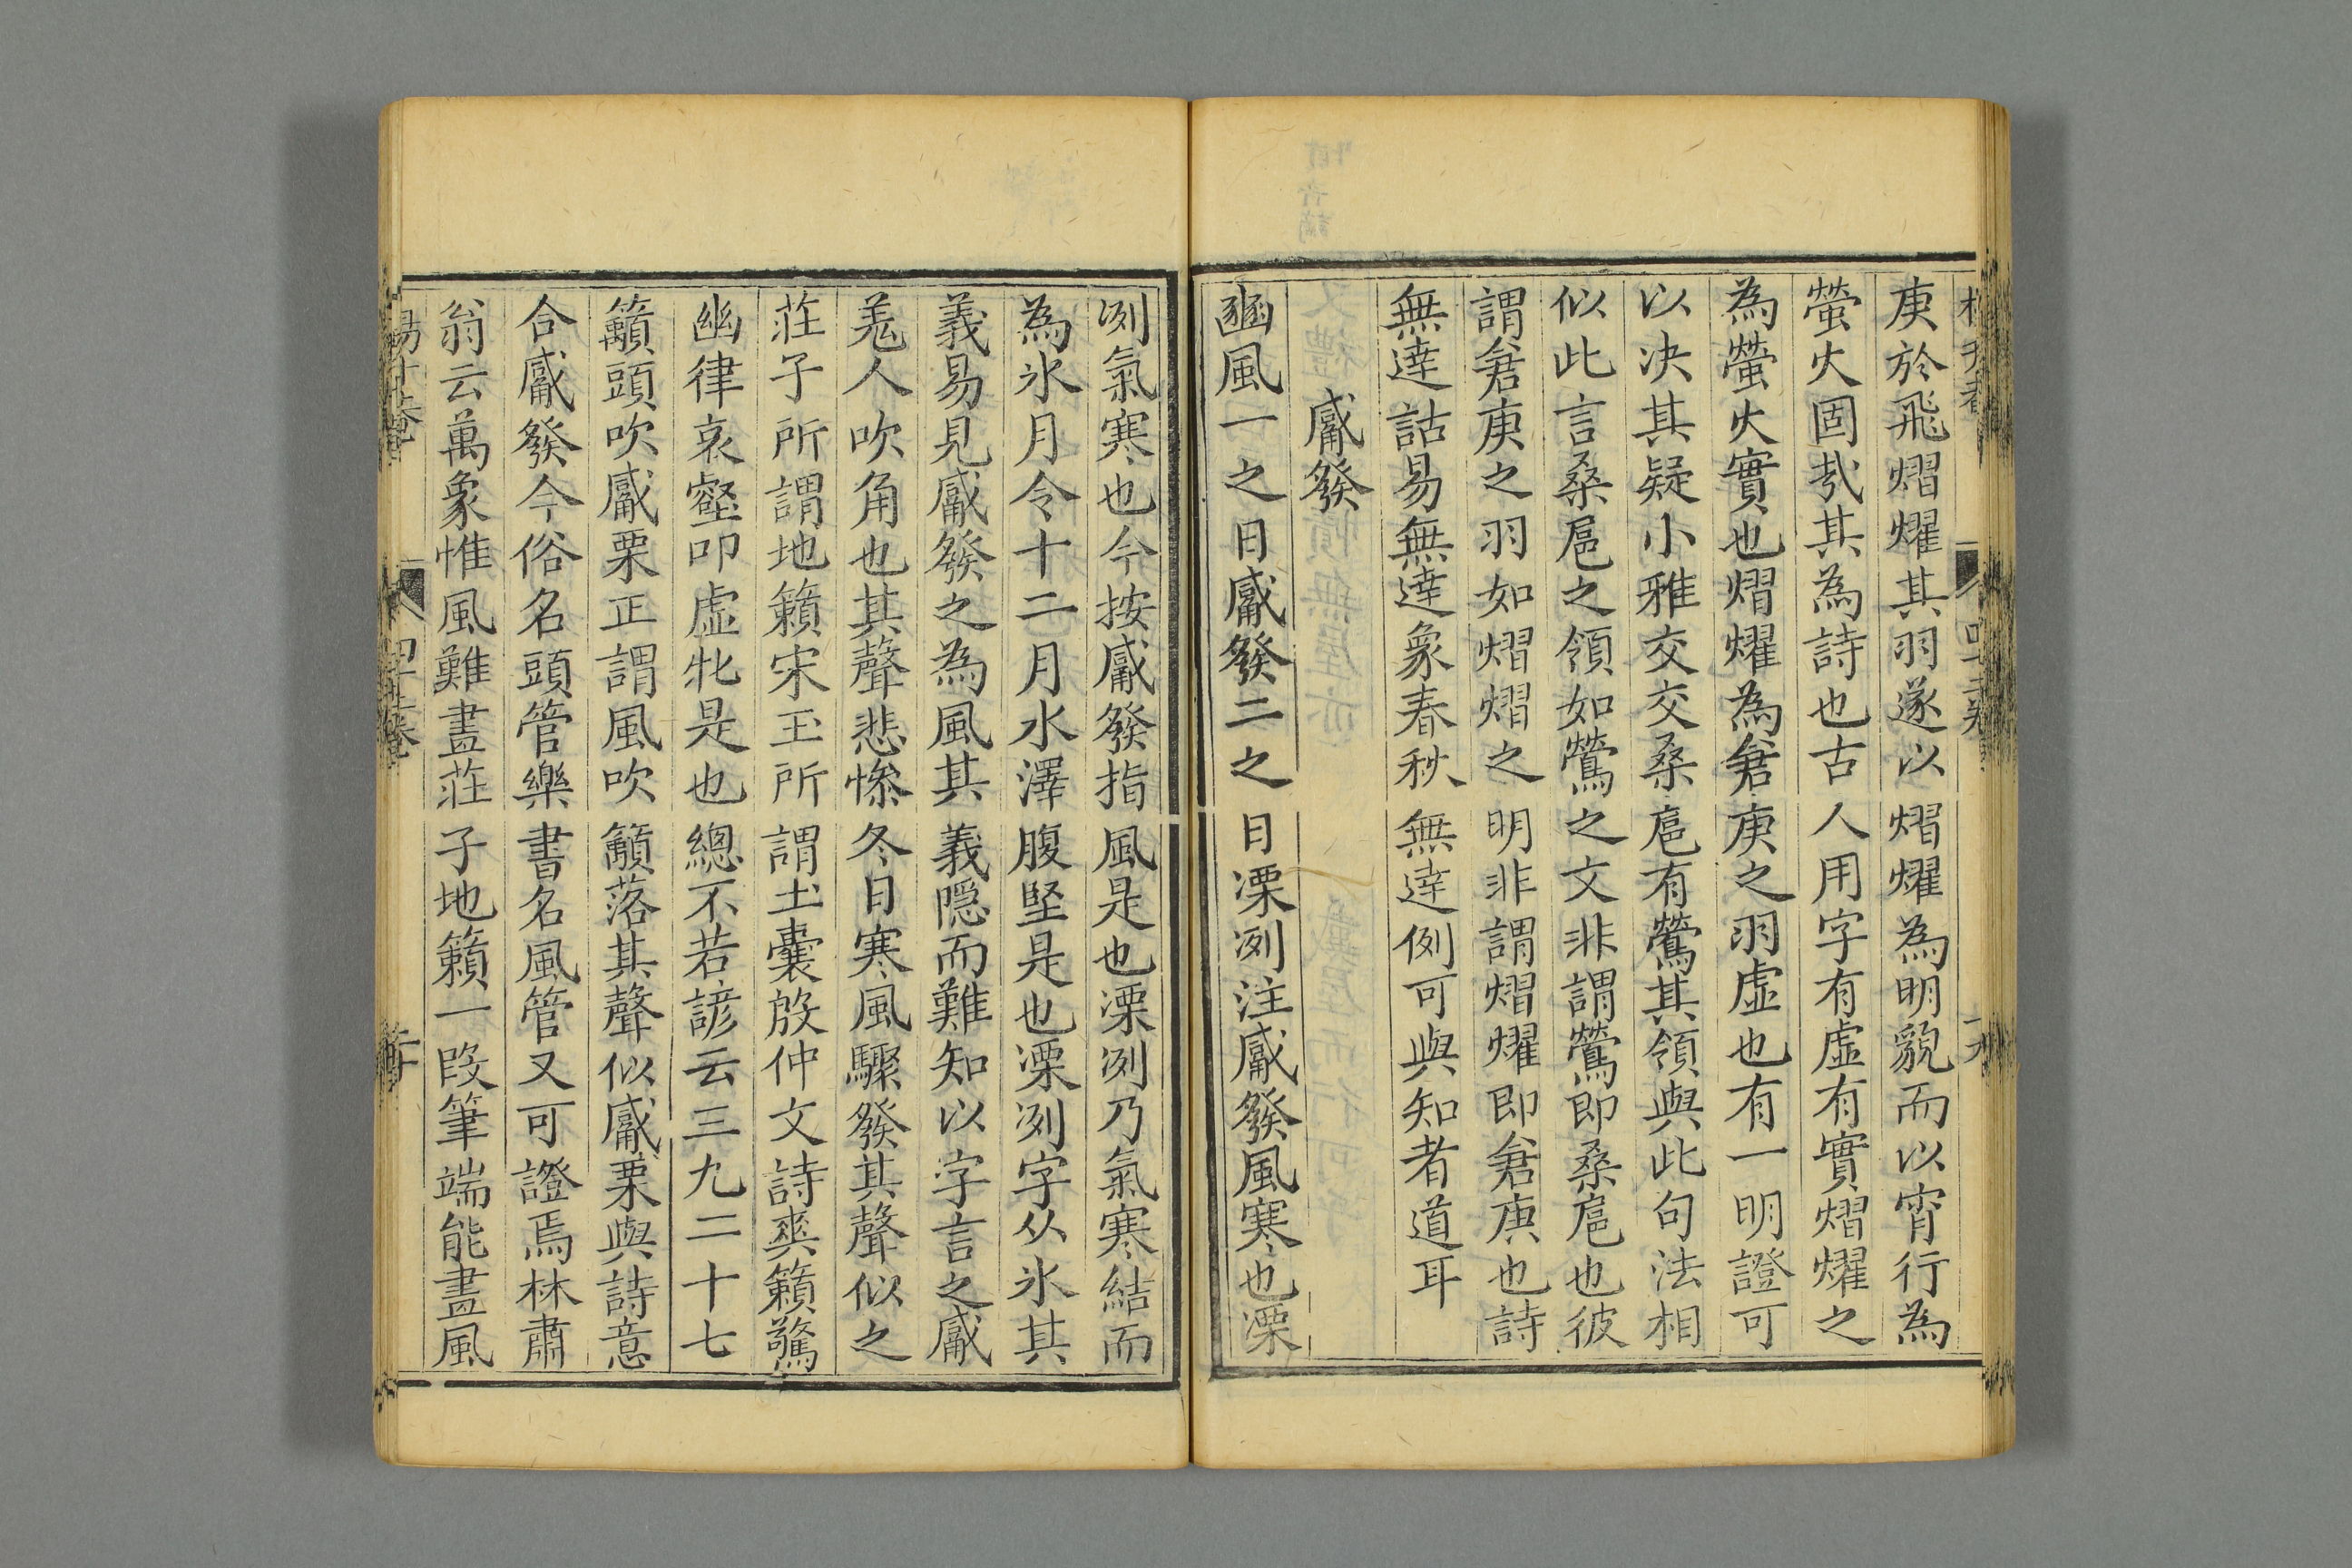 庚於飛熠燿其羽遂以熠燿為明貌而以宵行為
螢火固哉其為詩也古人用字有虛有實熠燿之
為螢火實也熠燿為倉庚之羽虛也有一明證可
以决其疑小雅交交桑扈有鶯其領與此句法相
似此言桑扈之領如鶯之文非謂鶯即桑扈也彼
謂倉庚之羽如熠熠之明非謂熠燿即倉庚也詩
無達詁易無達象春秋無達例可與知者道耳
觱發
豳風一之日觱發二之日凓冽注觱發風寒也凓
冽氣寒也今按觱發指風是也凓冽乃氣寒結而
為氷月令十二月水澤腹堅是也凓冽字从氷其
義易見觱發之為風其義隠而難知以字言之觱
羗人吹角也其聲悲慘冬日寒風驟發其聲似之
莊子所謂地籟宋玉所謂土囊殷仲文詩爽籟驚
幽律哀壑叩虛牝是也總不若諺云三九二十七
籬頭吹觱栗正謂風吹籬落其聲似觱栗與詩意
合觱發今俗名頭管樂書名風管又可證焉林肅
翁云萬象惟風難畫莊子地籟一段筆端能畫風